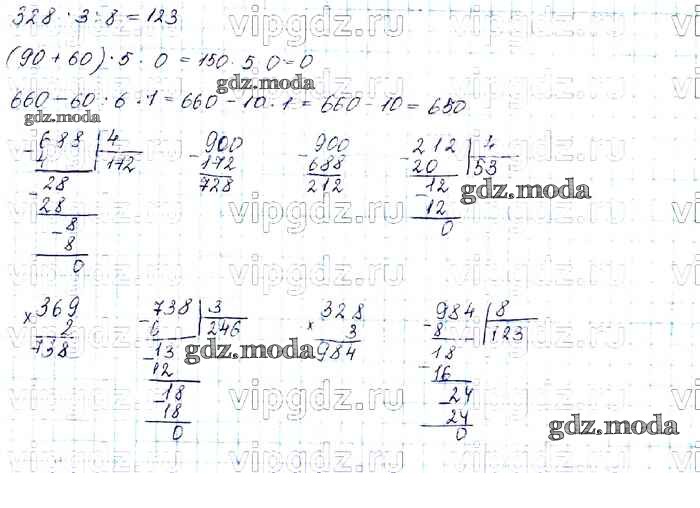 328 · 3 : 8 = 123
(90 + 60) · 5 · 0 = 150 · 5 · 0 = 0
660 - 60 : 6 · 1 = 660 - 10 · 1 = 660 - 10 = 650
688 4 900 900 212 4
4 172 172 688 20 53
28 728 212 12
28 12
8 0
8
0
369 738 3 328 984 8
× 2 6 246 × 3 8 123
738 13 984 18
12 16
18 24
18 24
0 0
vipgdz.ru
gdz.moda